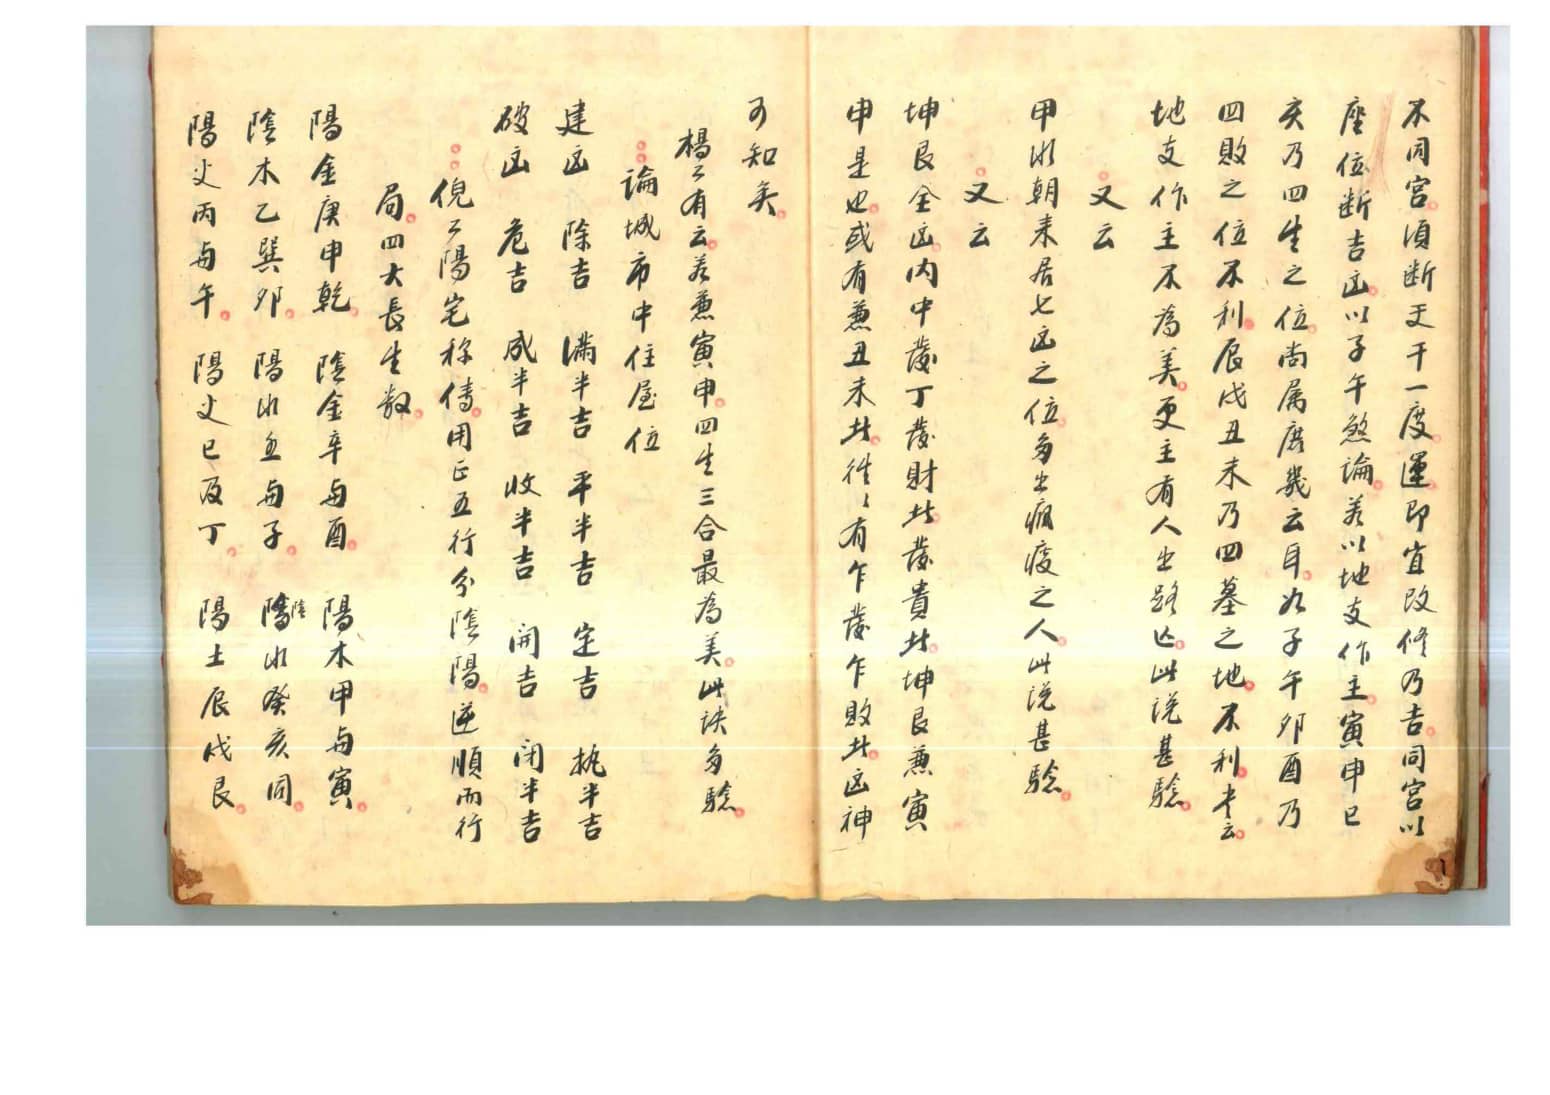 不同宮。須斷天干一度。運即宜改修乃吉。同宮以
座位斷吉凶。以子午煞論。若以地支作主。寅申巳
亥乃四生之位。尚属庶幾云耳。如子午卯酉乃
四敗之位不利。辰戌丑未乃四墓之地。不利。書云。
地支作主不為美。更主有人出路亡。此說甚驗。
又云
甲水朝来居七凶之位。多出瘋疲之人。此說甚驗。
又云
坤艮全凶。内中發丁發財者。發貴者。坤艮兼寅
申是也。或有兼丑未者。往々有乍發乍敗者。凶神
可知矣。
楊公有云。若兼寅申。四生三合最為美。此訣多驗。
論城市中住屋位
建凶 除吉 滿半吉 平半吉 定吉 執半吉
破凶 危吉 成半吉 收半吉 開吉 閉半吉
倪公陽宅秘傳。用正五行分陰陽。逆順而行
局。四大長生數。
陽金庚申乾。 陰金辛与酉。 陽木甲与寅。
陰木乙巽卯。 陽水壬与子。 陰水癸亥同。
陽火丙与午。 陽火巳及丁。 陽土辰戌艮。